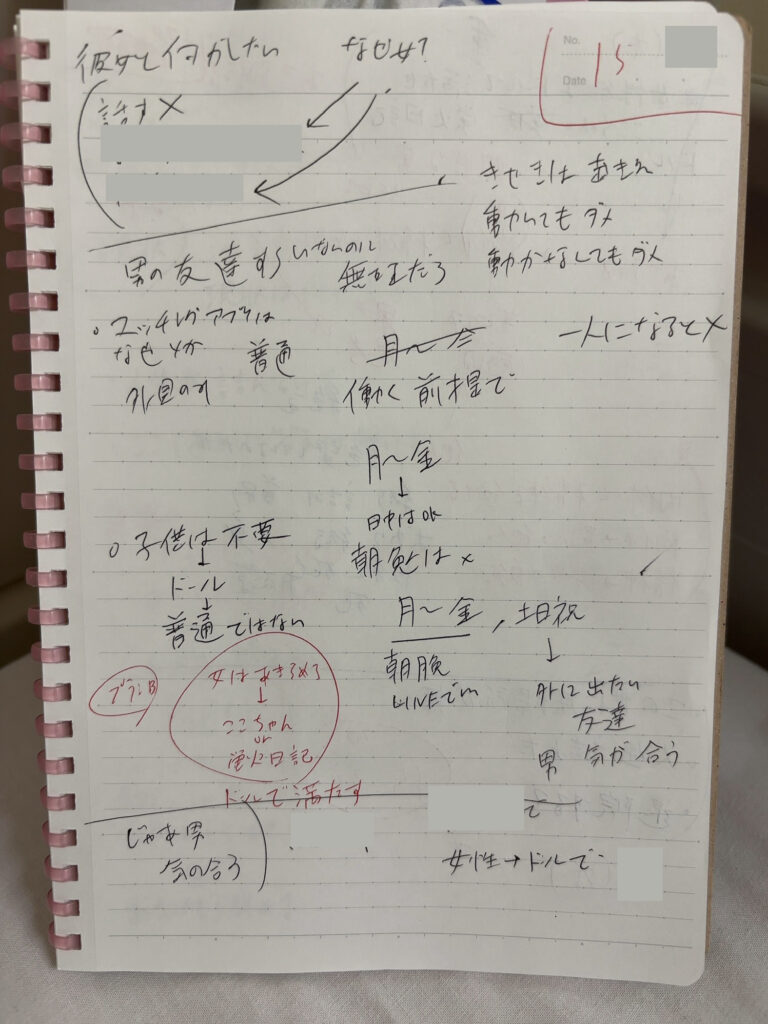 No.
Date 15
彼女と何がしたい
なぜ女?
話す×
きせきはあきれ
動いてもダメ
動かなくてもダメ
男の友達すらいないのに
無理だろ
マッチングアプリは
普通
月〜金
一人になると×
外見のみ
働く前提で
月〜金
↓
日中はOK
朝晩は×
○子供は不要
↓
ドール
↓
普通ではない
月〜金,土日祝
朝晩
LINEでい
↓
外に出たい
友達
男 気が合う
プランB
女はあきらめる
↓
ここちゃん
or
日記
ドールで満たす
で
じゃあ男
気の合う
女性→ドールで